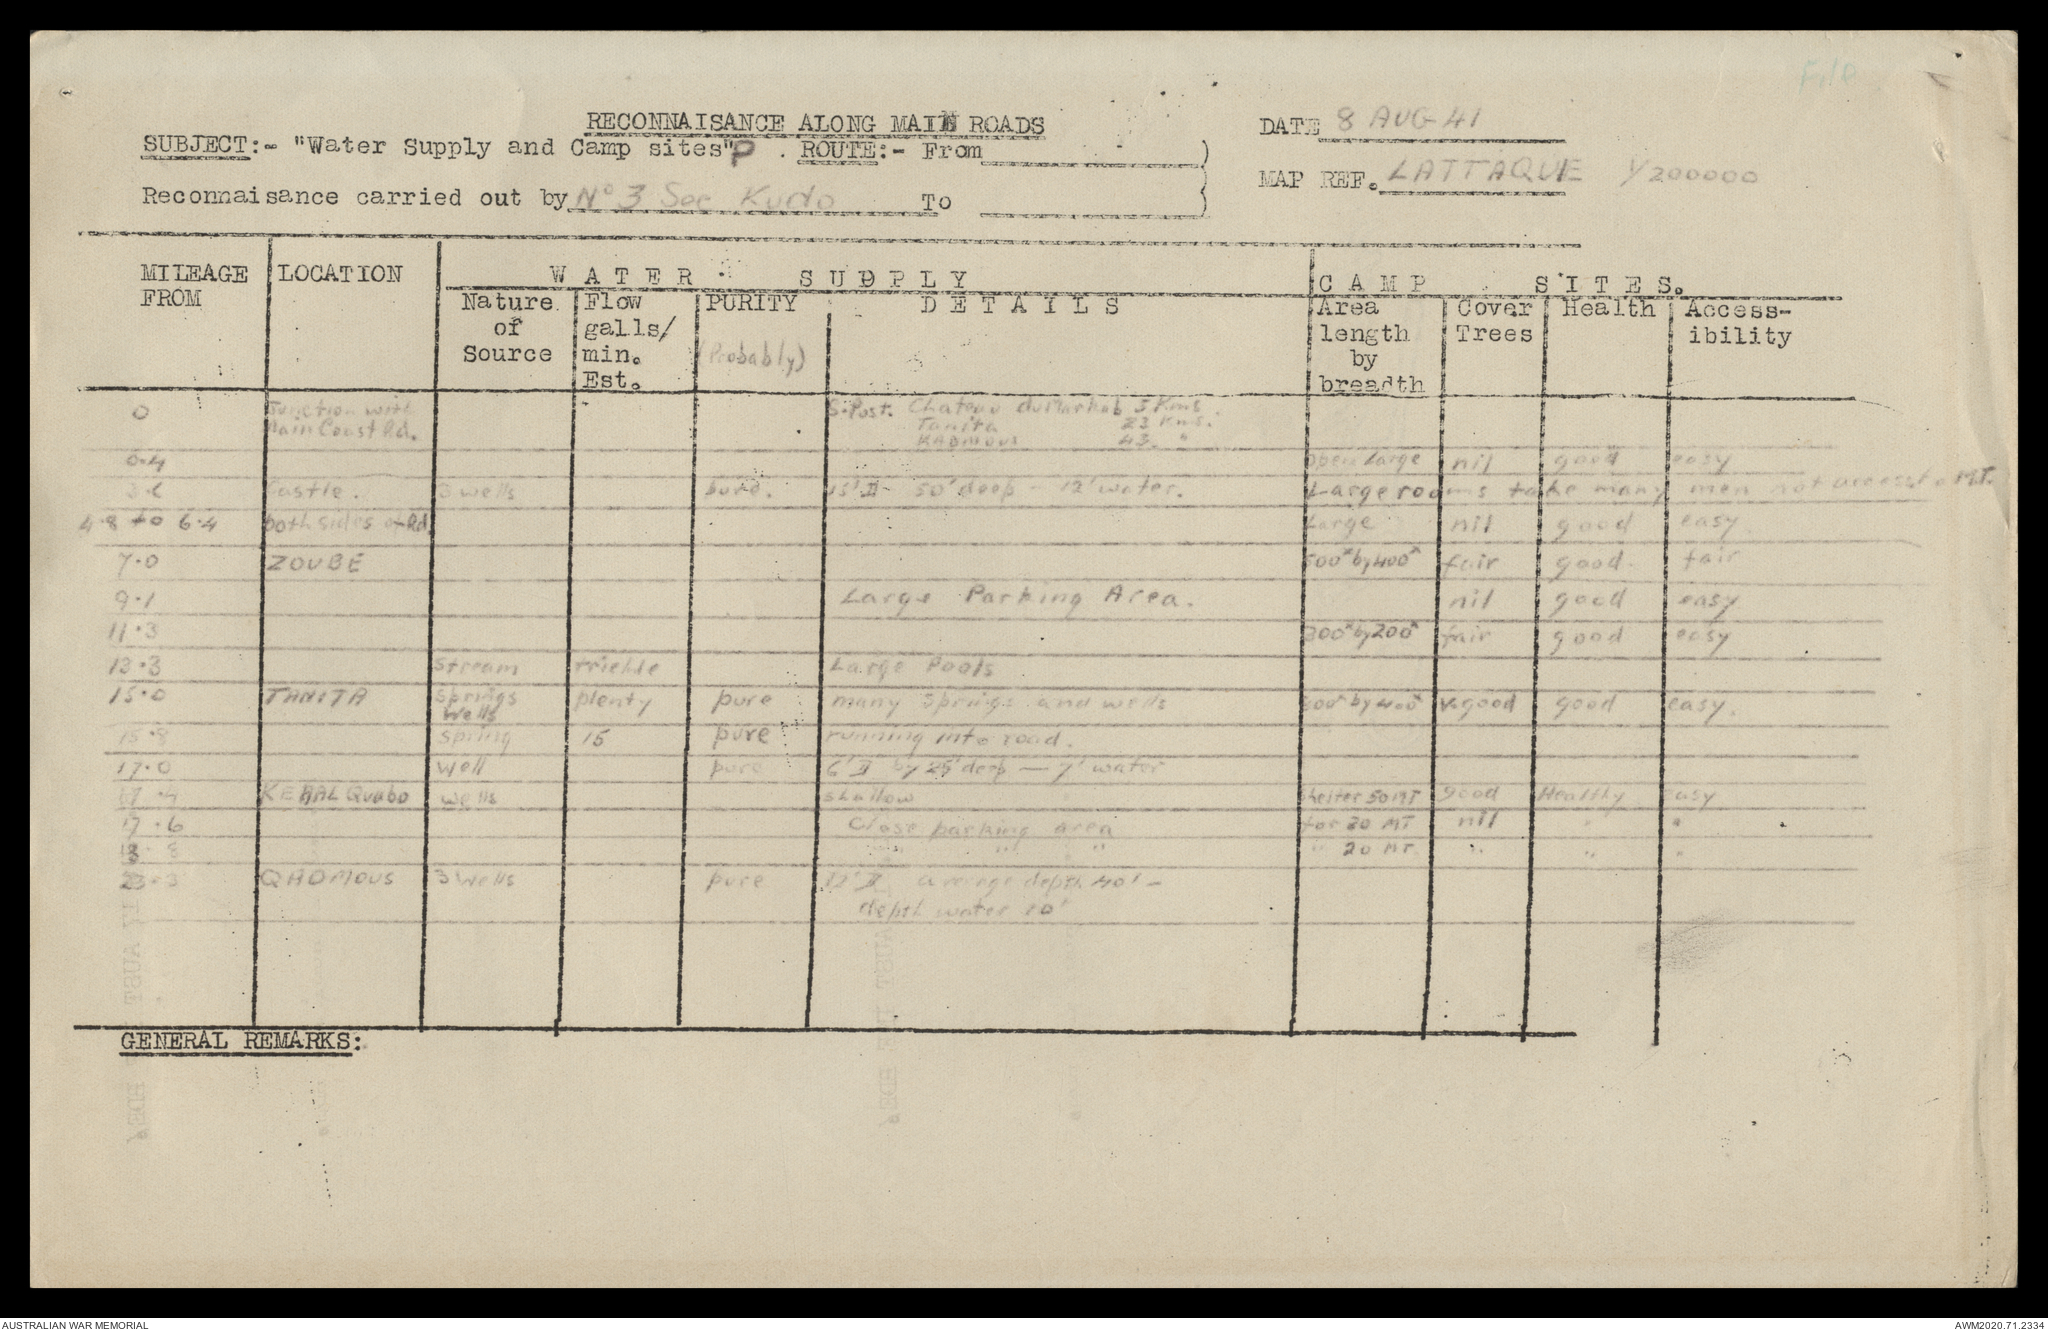 File
RECONNAISANCE ALONG MAIN ROADS
DATE 8 AUG 41
SUBJECT:- "Water Supply and Camp sites" P . ROUTE:- From
MAP REF. LATTAQUIE 1/200000
Reconnaisance carried out by No 3 Sec Kudo To
MILEAGE FROM LOCATION WATER SUPPLY CAMP SITES.
Nature of Source Flow galls/ min. Est. PURITY (Probably) DETAILS Area length by breadth Cover Trees Health Access-ibility
0 Junction with Main Coast Rd. S.Post. Chateau du Markab 5 Kms.
Tanita 23 Kms.
KADMOUS 43 "
0.4 Open Large nil good easy
Castle. 3 wells pure. 15' 50' deep - 12' water. Large rooms take many men not access to MT.
4.8 to 6.4 both sides of Rd Large nil good easy
7.0 ZOUBE 500x by 400x fair good fair
9.1 Large Parking Area. nil good easy
11.3 300x by 200x fair good easy
13.3 Stream trickle Large Pools
15.0 TANITA Springs Wells plenty pure many springs and wells by 400x v.good good easy.
15.8 Spring 15 pure running into road.
17.0 Well pure 6' by 25' deep - 7' water
17.4 Wells shallow Shelter 50 MT good Healthy easy
17.6 Close parking area for 30 MT nil " "
" " " " 20 MT " " "
23.3 QADMOUS 3 Wells pure 12' average depth 40' -
depth water 10'
GENERAL REMARKS:
AUSTRALIAN WAR MEMORIAL
AWM2020.71.2334